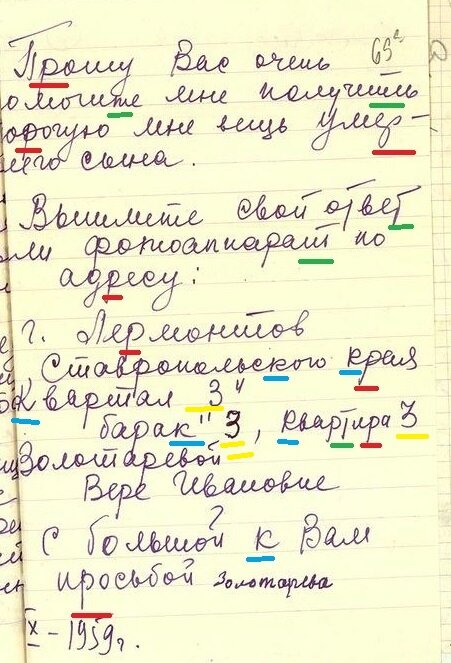 65²
Прошу Вас очень
омогите мне получить
орогую мне вещь умер-
его сына.
Вышлите свой ответ
ли фотоаппарат по
адресу:
г. Лермонтов
Ставропольского края
Квартал "З"
барак "З", квартира 3
Золотаревой
Вере Ивановне
С большой к Вам
просьбой Золотарева
IX – 1959г.